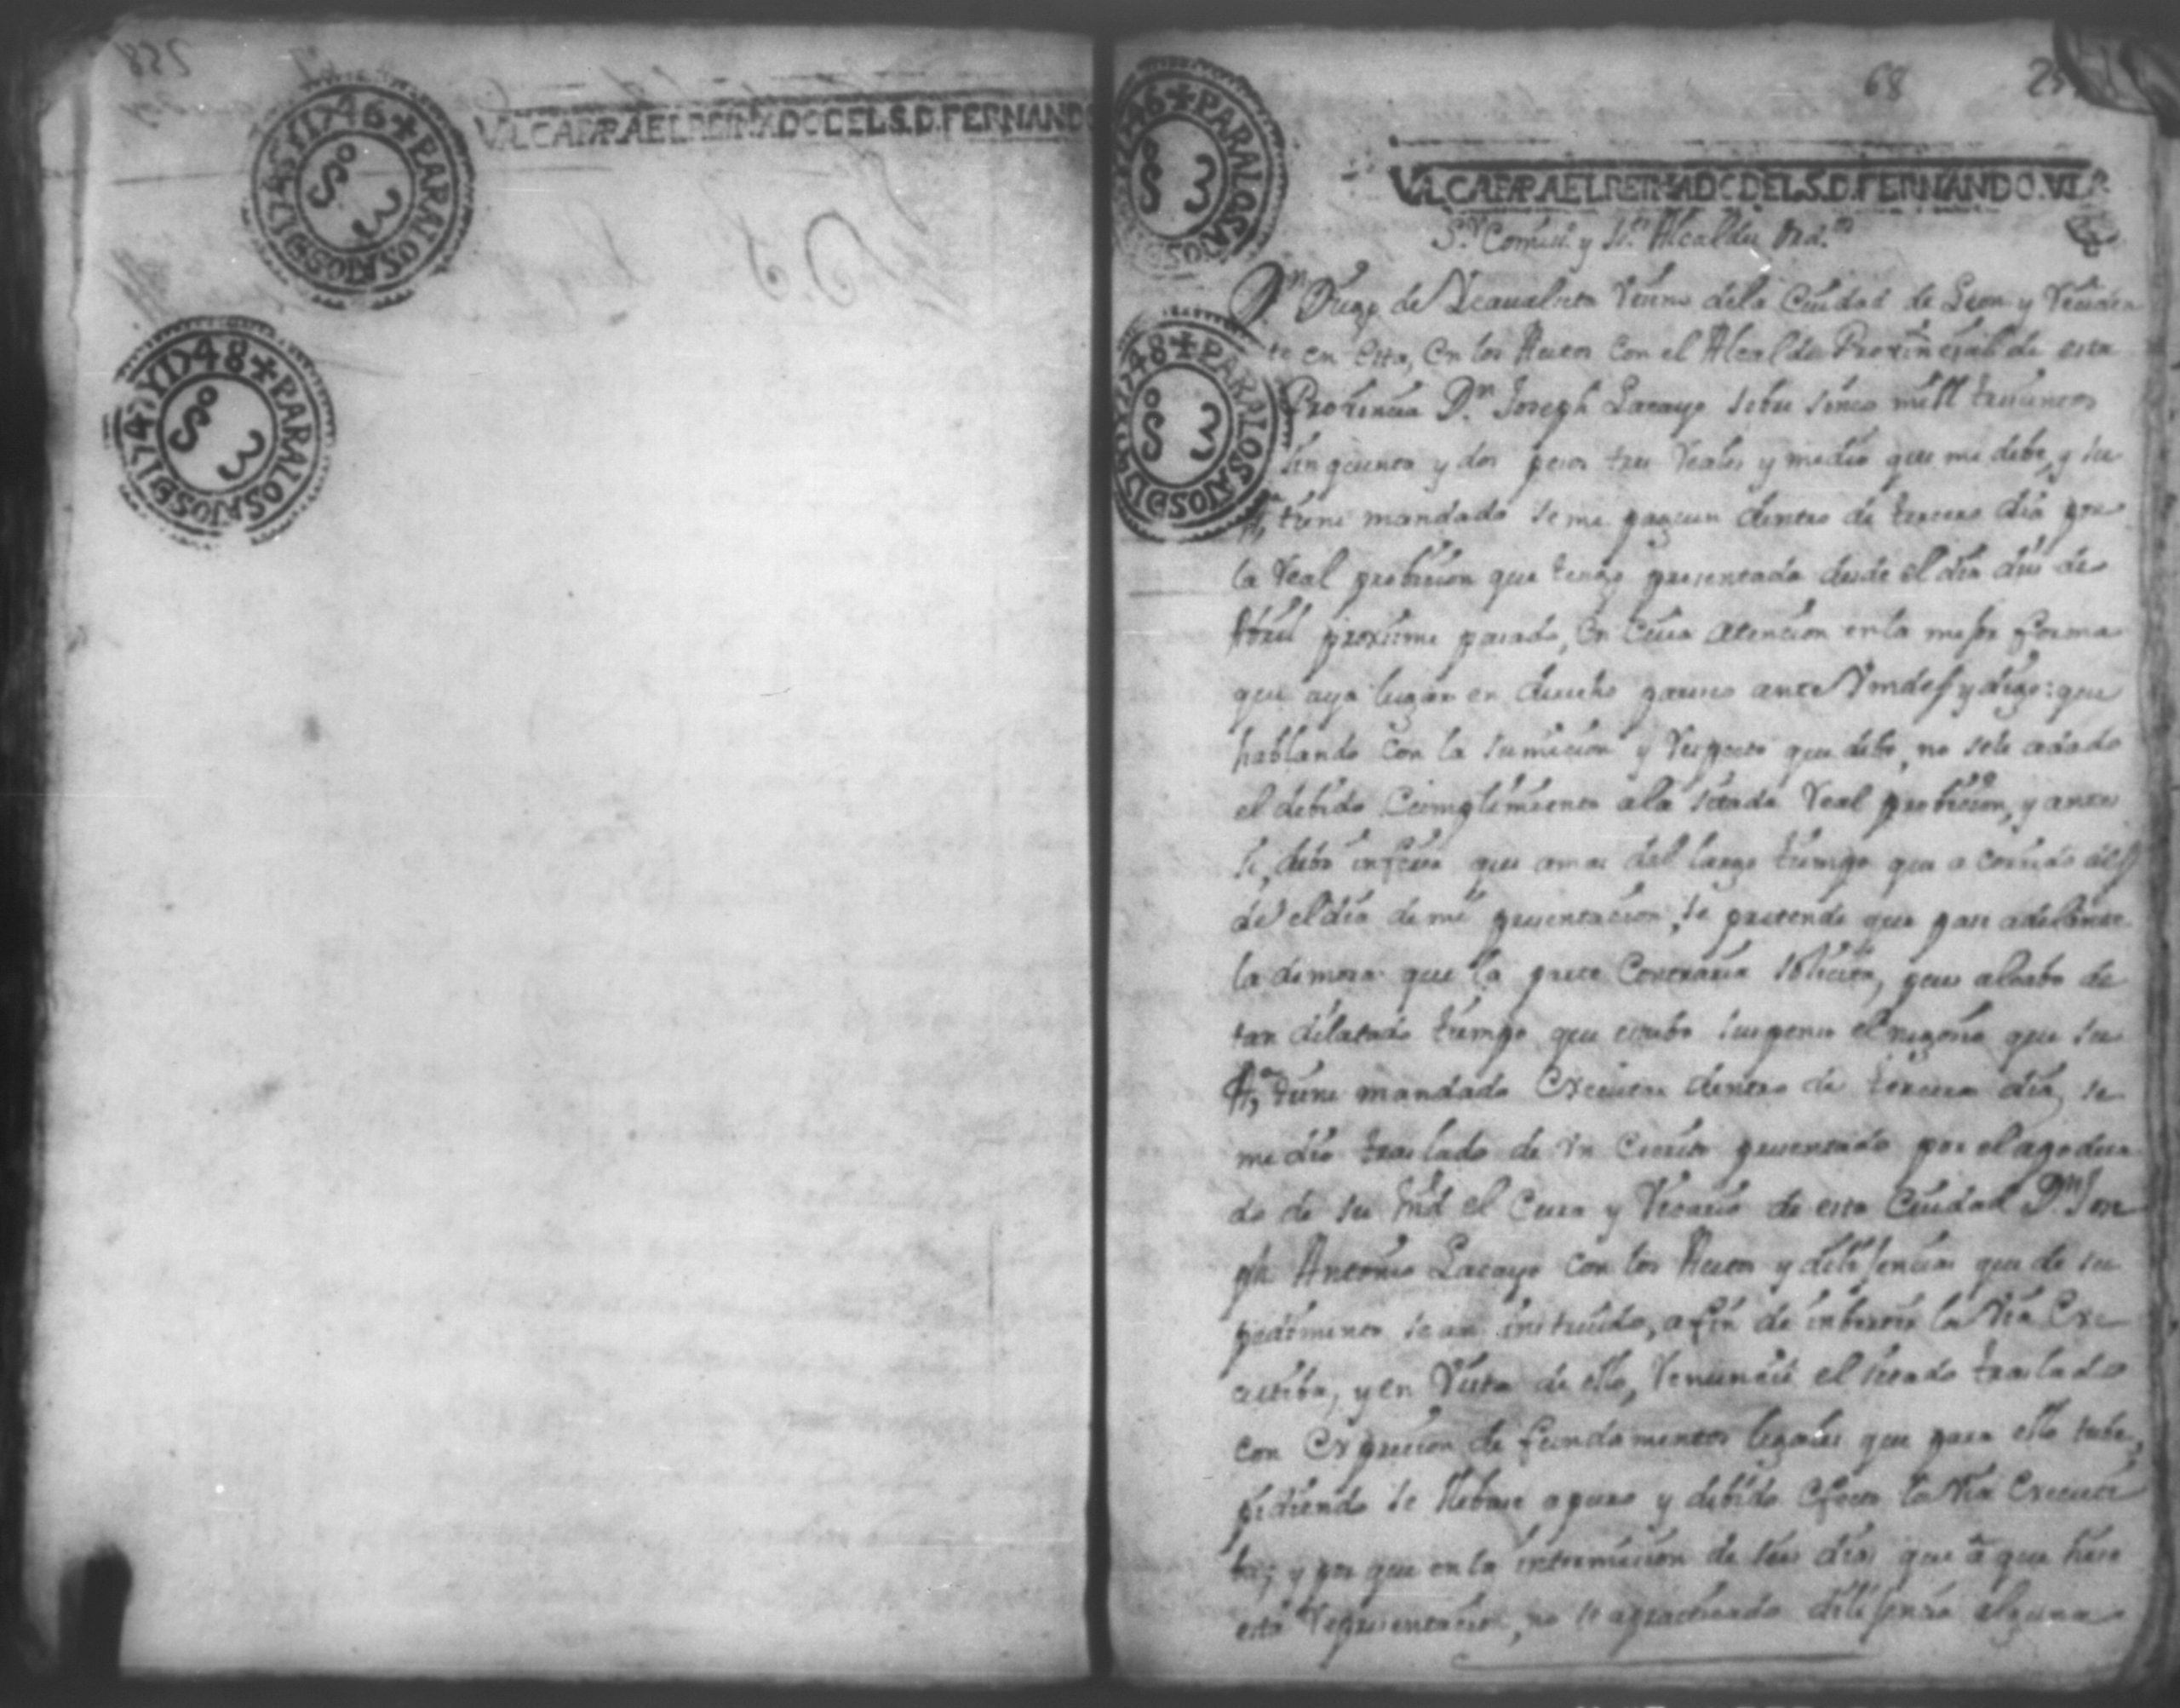 258
VALGA PARA EL REINADO DEL S. D. FERNANDO
1745 Y 1746 + PARA LOS AÑOS DE
S 3
1747 Y 1748 + PARA LOS AÑOS DE
S 3
68
VALGA PARA EL REINADO DEL S. D. FERNANDO. VI.
1746 + PARA LOS AÑOS
S 3
1748 + PARA LOS AÑOS DE
S 3
Sr. Comiss. y Sr. Alcalde Ord.rio
Dn. Diego de Icaualseta Vecino dela Ciudad de Leon y Reciden
te en esta, en los Autos con el Alcalde Provincial de esta
Provincia Dn. Joseph Lacayo sobre sinco mill trecientos
sinquenta y dos pesos tres reales y medio que me debe, y su
Aa. tiene mandado seme paguen dentro de tercero dia por
la Real probicion que tengo presentada desde el dia dies de
Abril proximo pasado, en cuia atencion en la mejor forma
que aya lugar en derecho paresco ante Vmdes y digo: que
hablando con la sumicion y respecto que debo, no sele adado
el debido Cumplimiento ala sitada Real probicion, y antes
si, debo inferir que amas del largo tiempo que a corrido des
de el dia de mi presentacion, se pretende que pase adelante
la demora que la parte Contraria solicita, pues alcabo de
tan dilatado tiempo que estubo suspenso el negosio que su
Aa. tiene mandado Executar dentro de tercero dia, se
me dio traslado de un Escrito presentado por el apodera
do de su Md el Cura y Vicario de esta Ciudad Dn. Jose
ph Antonio Lacayo con los Autos y delijencias que de su
pedimento sean instruido, afin de inbertir la Via Exe
cutiba, y en Vista de ello, renuncié el sitado traslado
con Exprecion de fundamentos legales que para ello tube,
pidiendo se llebase a puro y debido efecto la Via Executi
ba; y por que en la intermicion de seis dias que â que hise
esta representacion, no se apracticado delijencia alguna